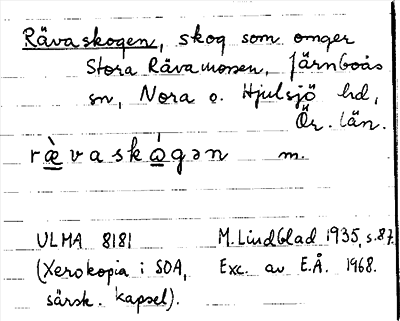 Rävaskogen, skog som omger
Stora Rävamossen, Järnboås
sn, Nora o. Hjulsjö hd,
Ör. län.
ræ̀vaskógən m.
ULMA 8181 M. Lindblad 1935, s. 87.
(Xerokopia i SOA, Exc. av E.Å. 1968.
särsk. kapsel).